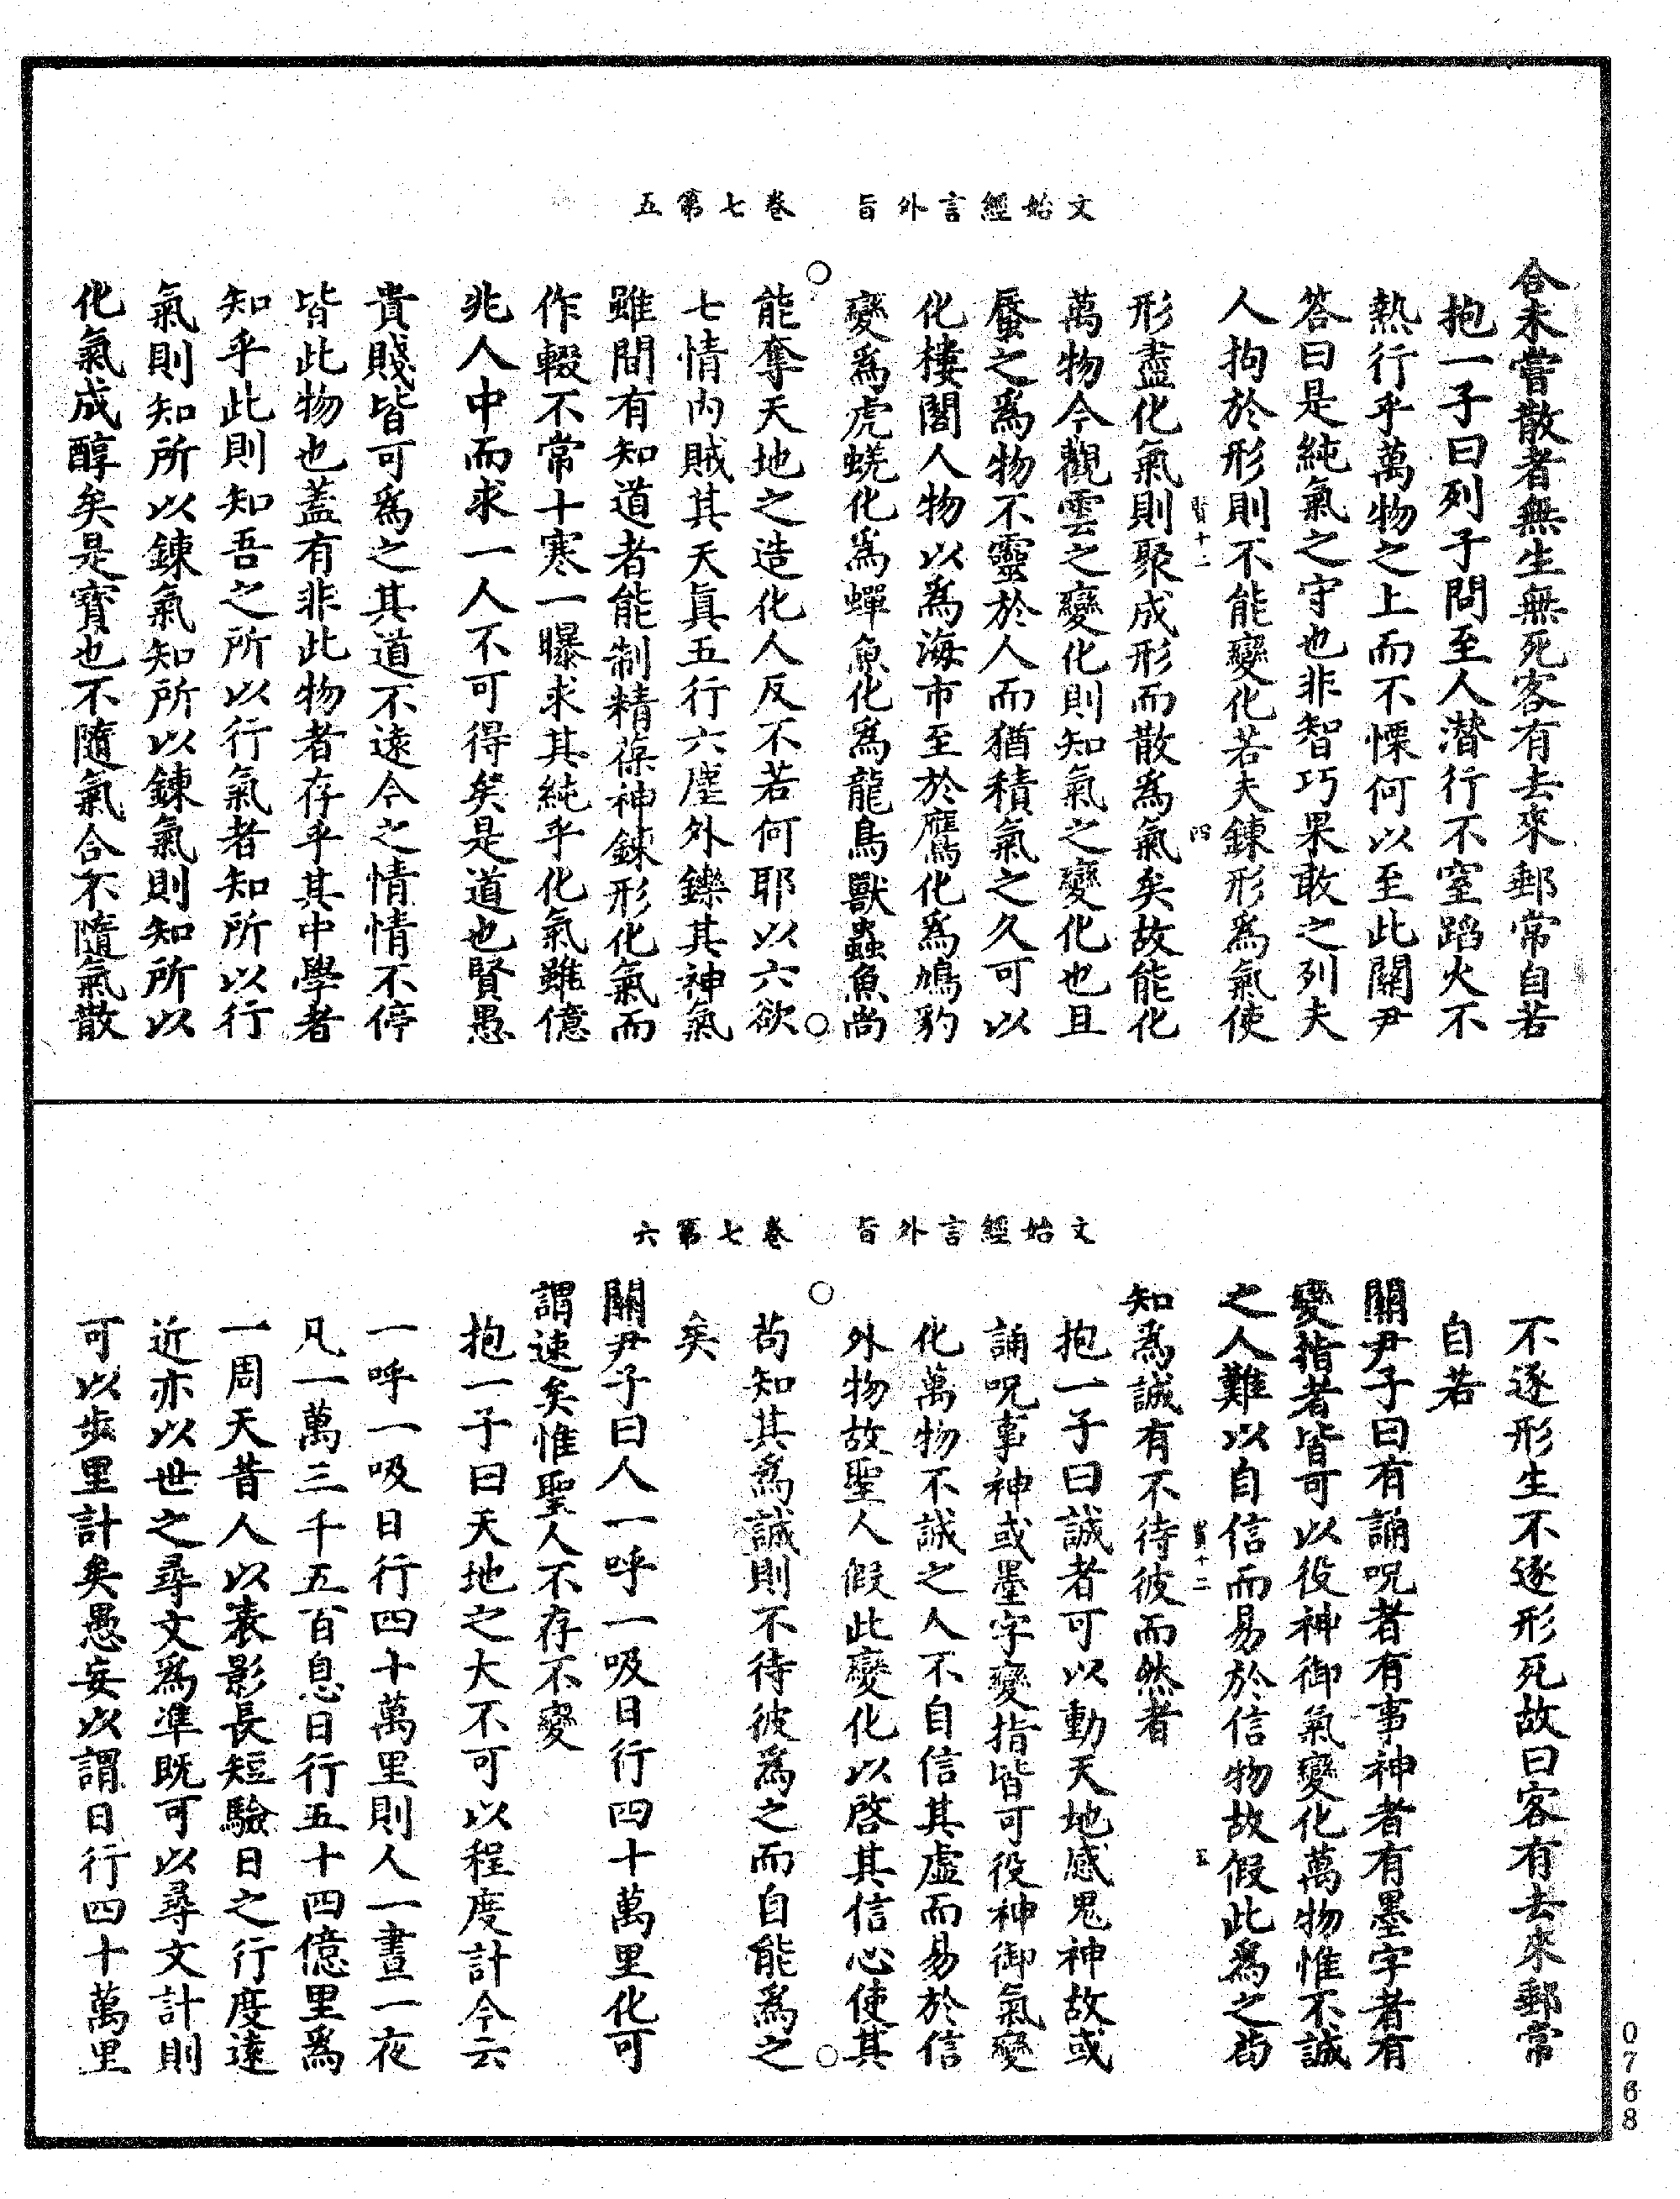 文始經言外旨　卷七第五
合未嘗散者無生無死客有去來郵常自若
抱一子曰列子問至人潜行不窒蹈火不
熱行乎萬物之上而不慄何以至此關尹
答曰是純氣之守也非智巧果敢之列夫
人拘於形則不能變化若夫鍊形爲氣使
形盡化氣則聚成形而散爲氣矣故能化
萬物今觀雲之變化則知氣之變化也且
蜃之爲物不靈於人而猶積氣之久可以
化樓閣人物以爲海市至於鷹化爲鳩豹
變爲虎蟯化爲蟬魚化爲龍鳥獸蟲魚尚
能奪天地之造化人反不若何耶以六欲
七情內賊其天眞五行六塵外鑠其神氣
雖間有知道者能制精葆神鍊形化氣而
作輟不常十寒一曝求其純乎化氣雖億
兆人中而求一人不可得矣是道也賢愚
貴賤皆可爲之其道不遠今之情情不停
皆此物也蓋有非此物者存乎其中學者
知乎此則知吾之所以行氣者知所以行
氣則知所以鍊氣知所以鍊氣則知所以
化氣成醇矣是寶也不隨氣合不隨氣散
文始經言外旨　卷七第六
不逐形生不逐形死故曰客有去來郵常
自若
關尹子曰有誦呪者有事神者有墨字者有
變指者皆可以役神御氣變化萬物惟不誠
之人難以自信而易於信物故假此爲之苟
知爲誠有不待彼而然者
抱一子曰誠者可以動天地感鬼神故或
誦呪事神或墨字變指皆可役神御氣變
化萬物不誠之人不自信其虛而易於信
外物故聖人假此變化以啓其信心使其
苟知其爲誠則不待彼爲之而自能爲之
矣
關尹子曰人一呼一吸日行四十萬里化可
謂速矣惟聖人不存不變
抱一子曰天地之大不可以程度計今云
一呼一吸日行四十萬里則人一晝一夜
凡一萬三千五百息日行五十四億里爲
一周天昔人以表影長短驗日之行度遠
近亦以世之尋文爲準既可以尋文計則
可以步里計矣愚妄以謂日行四十萬里
0768